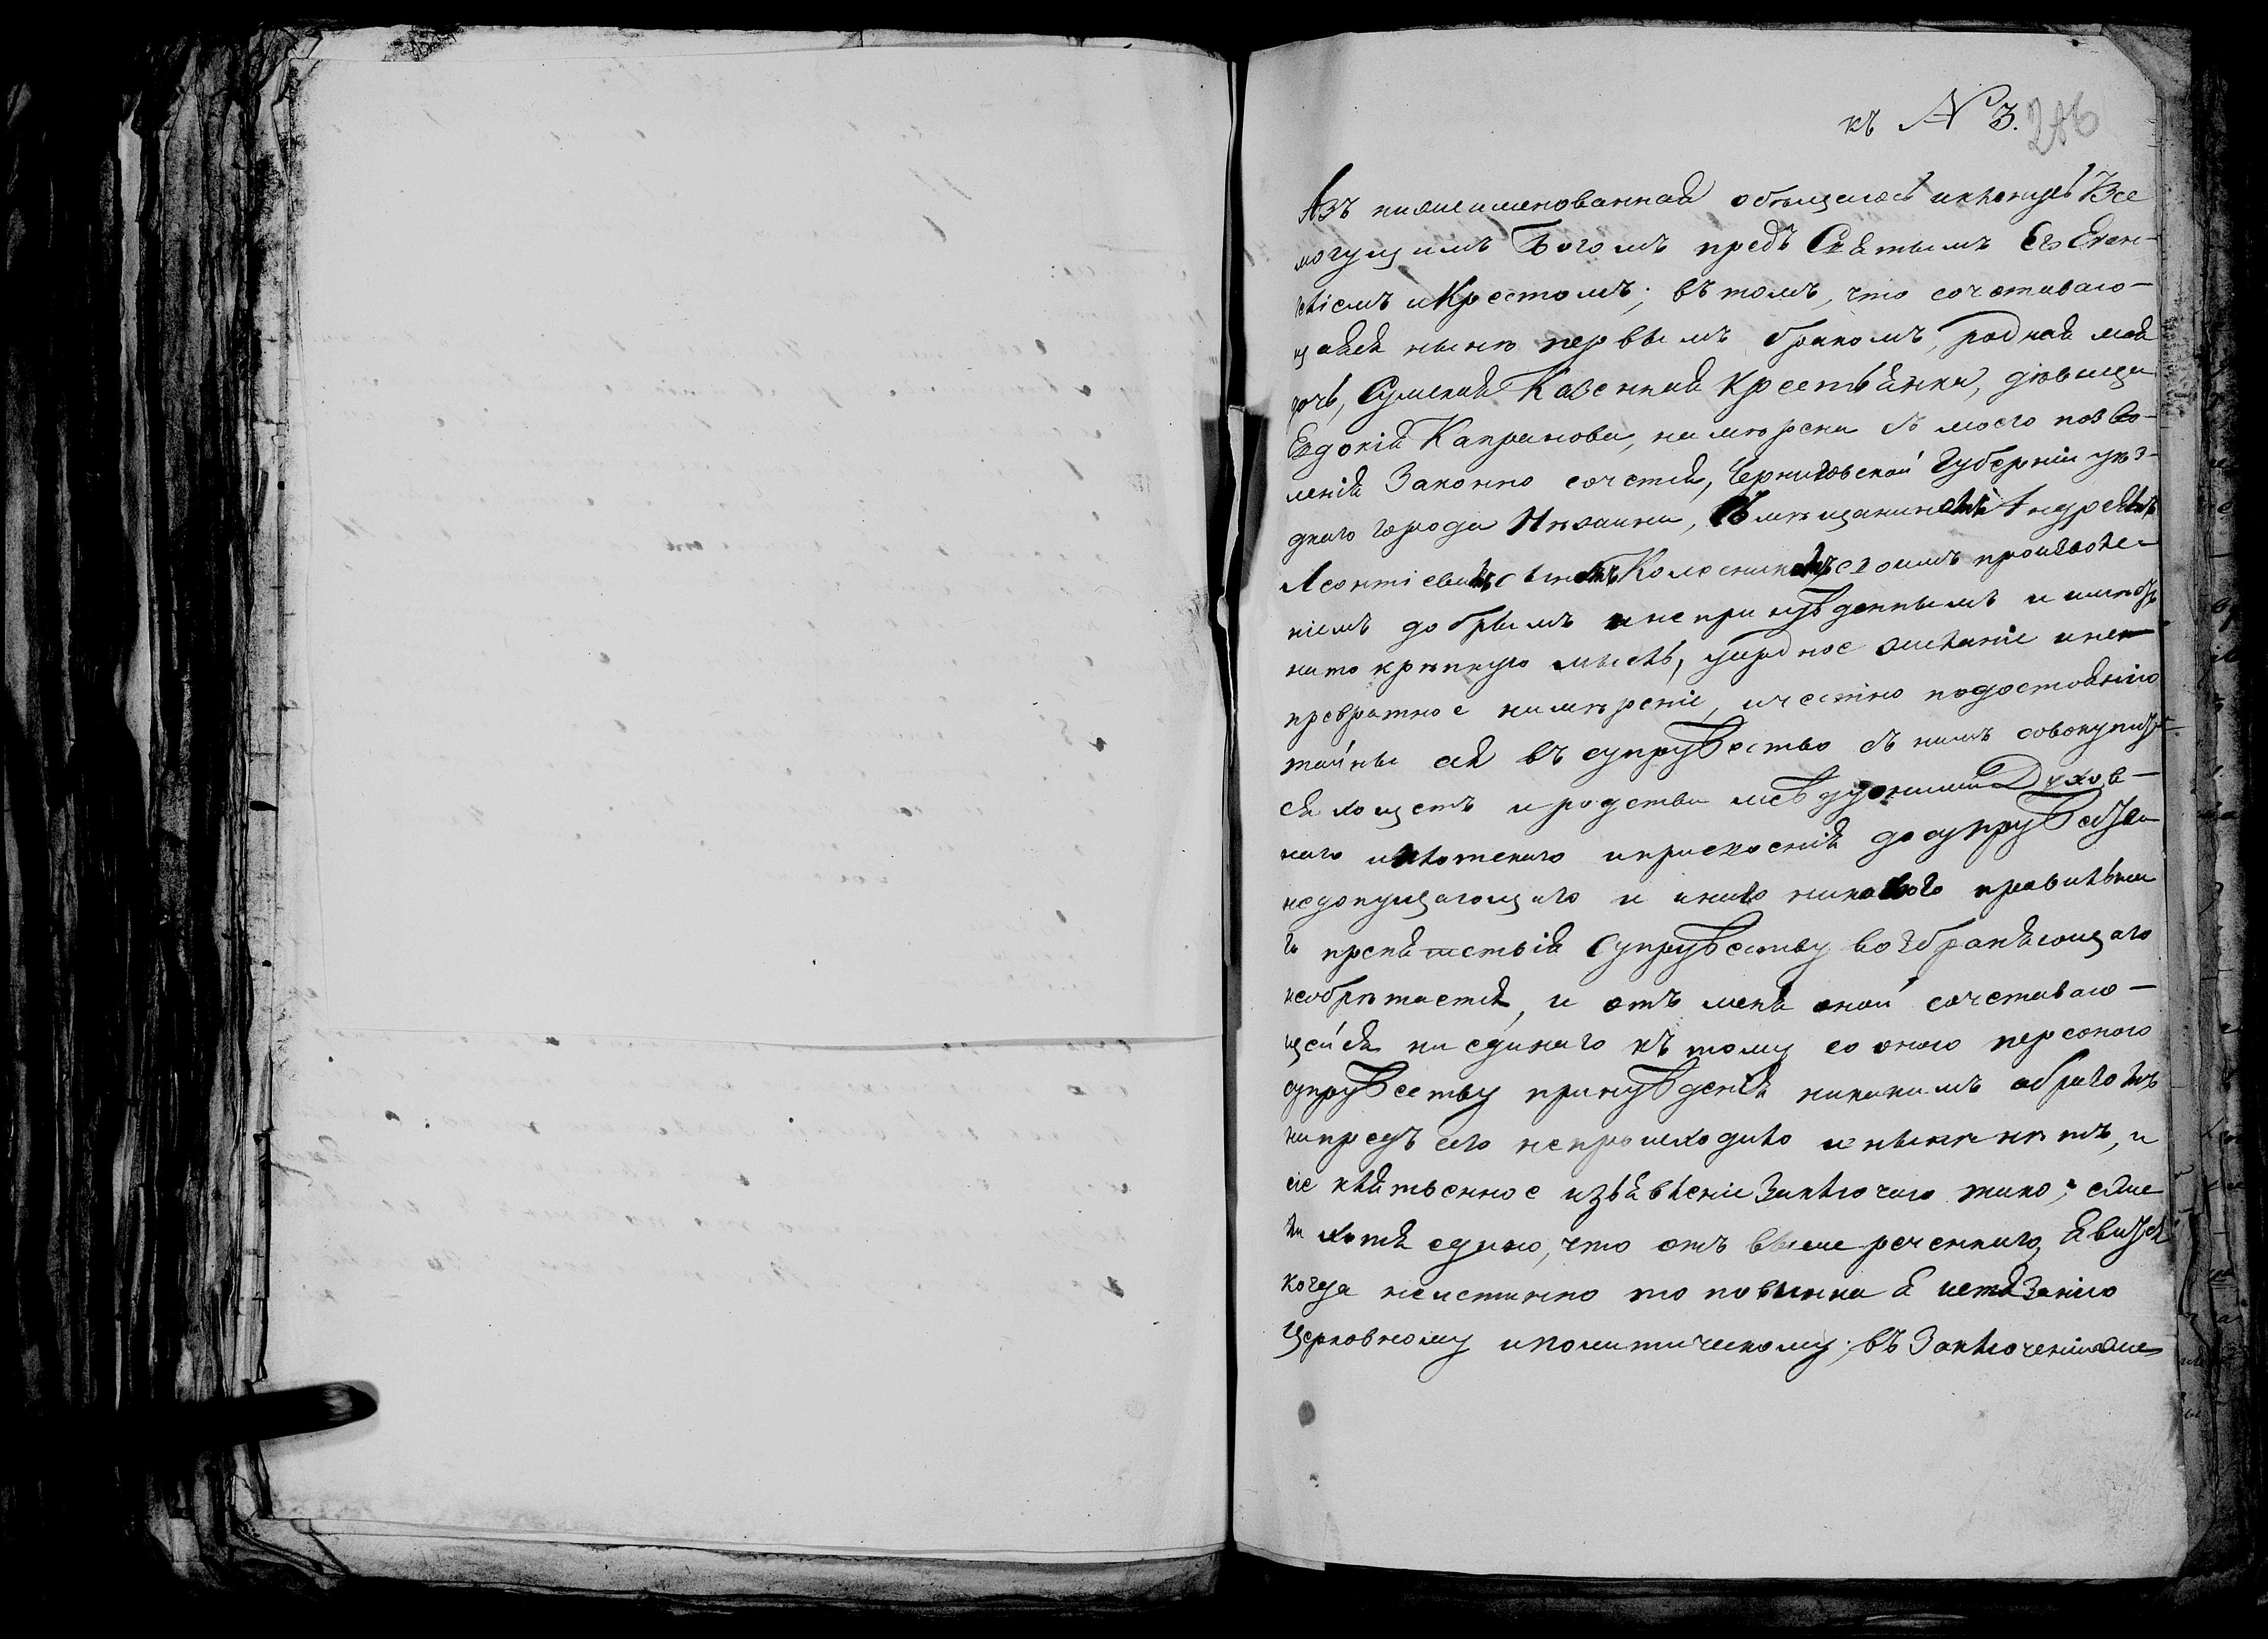 къ № 3. 206
Азъ нижеименованная обѣщаюсь и клянусь Все
могущимъ Богомъ предъ Святымъ Его Еван-
геліемъ и Крестомъ; въ томъ, что сочетаваю-
щаяся нынѣ первымъ бракомъ, родная моя
дочь, Сумская Казенная крестьянка, дѣвица
Евдокія Капранова, намѣрена съ моего позво-
ленія Законно сочется, Черниговской Губерніи уѣз-
днаго города Нѣжина, съ мѣщаниномъ Андреемъ
Леонтіевымъ сыномъ Колесникомъ своимъ произволе-
ніемъ добрымъ и непринужденнымъ и имѣетъ
на то крѣпкую мысль, усердное желаніе и не
превратное намѣреніе, и честно по достоянію
тайны сея въ супружество съ нимъ совокупит-
ся хощетъ и родства между ними Духов-
наго и плотскаго и присвоенія до супружества
недопущающаго и инаго никакого правильна
го препятствія Супружеству возбраняющаго
необрѣтается, и отъ меня оной сочетаваю-
щейся ни единаго къ тому со оною персоною
супружеству принужденія никакимъ образомъ
напредъ сего непроисходило и нынѣ нѣтъ, и
сіе клятвенное изъявленіе Заключаю тако; еже
ли хотя едино, что отъ выше реченнаго, явится
когда неистинно то повинна я истязанію
Церковному и политическому; въ Заключеніи же